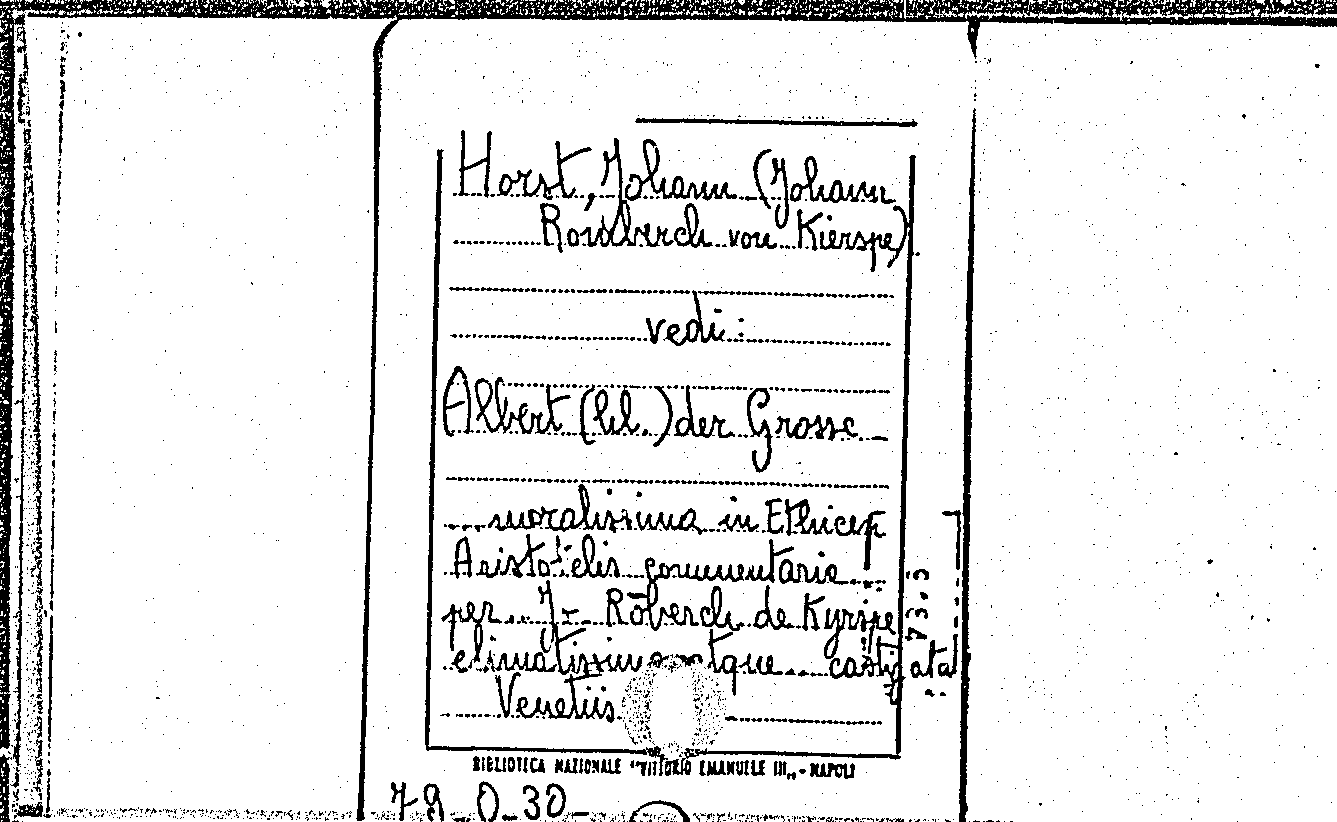 Horst, Johann (Johann
Romberch von Kierspe)
vedi:
Albert (hl.) der Grosse
... moralissima in Ethicen
Aristotelis commentaria ...
per ... Jo. Rōberch de Kyrspe
elimatissime atque ... castigata
Venetiis
73.3
BIBLIOTECA NAZIONALE "VITTORIO EMANUELE III„ - NAPOLI
79_0_30_